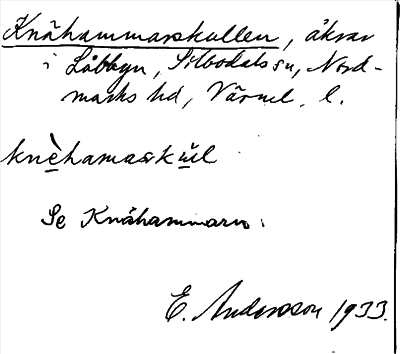 Knähammarskullen, åkrar
i Låbbyn, Silbodals sn, Nord-
marks hd, Värml. l.
knèhamaskŭl
Se Knähammarn.
E. Andersson 1933.